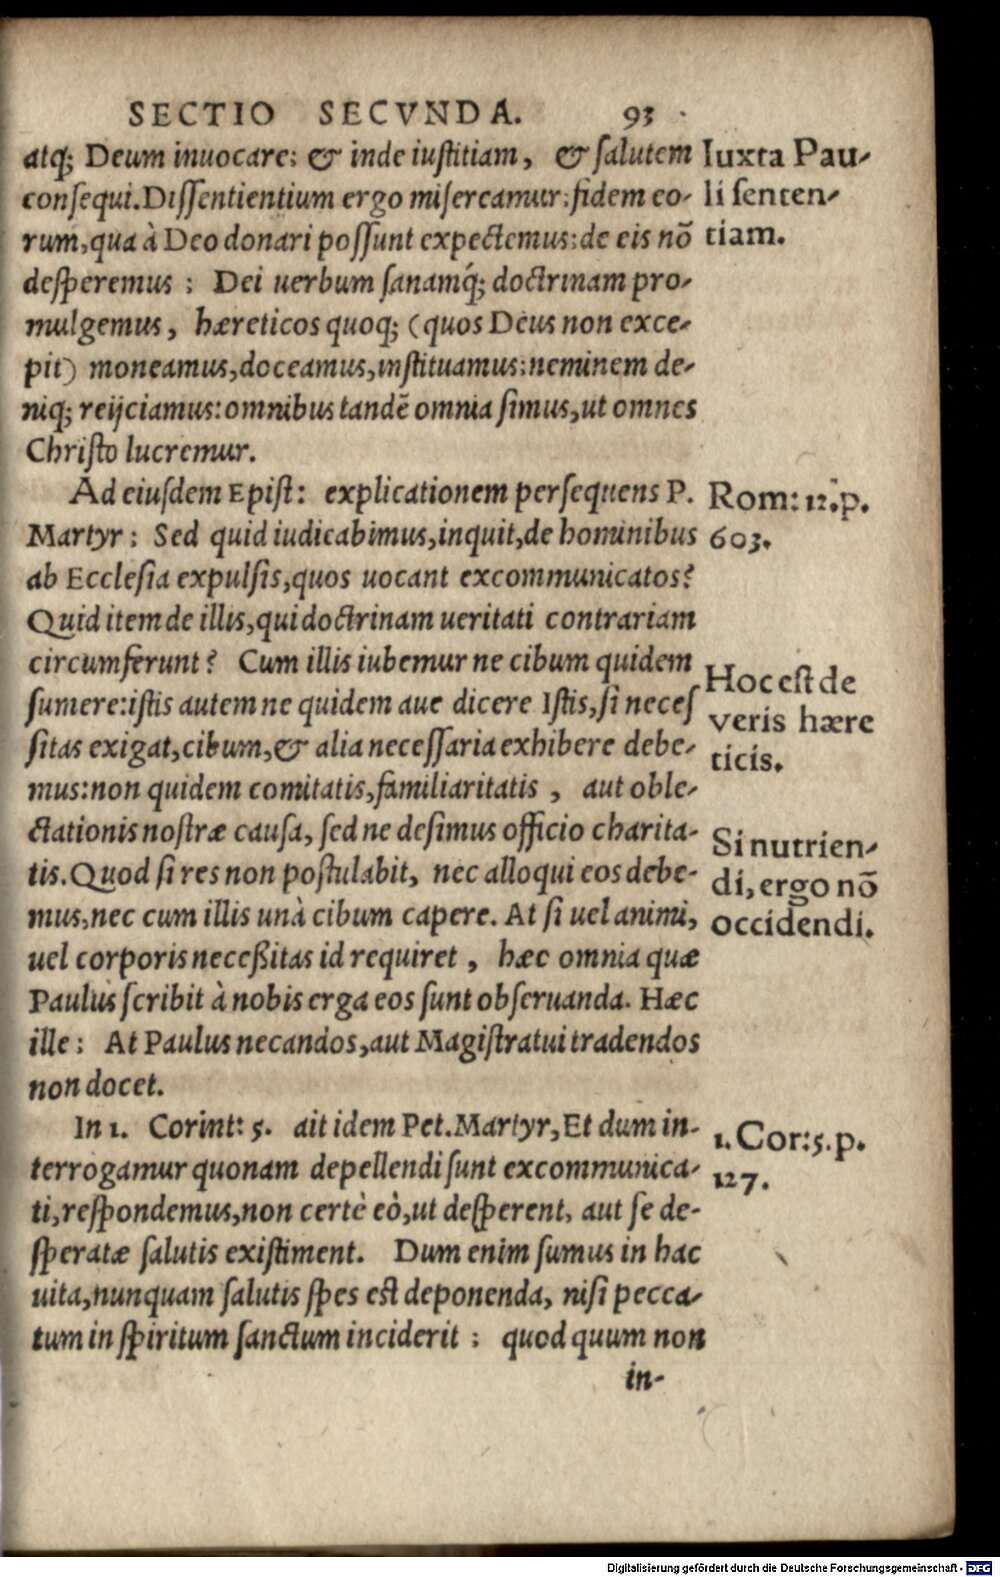 SECTIO SECVNDA. 93
atq; Deum inuocare: & inde iustitiam, & salutem
consequi. Dissentientium ergo misereamur: fidem eo-
rum, qua à Deo donari possunt expectemus: de eis nō
desperemus: Dei uerbum sanamq́; doctrinam pro-
mulgemus, hæreticos quoq; (quos Deus non exce-
pit) moneamus, doceamus, instituamus: neminem de-
niq; reijciamus: omnibus tandē omnia simus, ut omnes
Christo lucremur.
Iuxta Pau-
li senten-
tiam.
Ad eiusdem Epist: explicationem persequens P.
Martyr: Sed quid iudicabimus, inquit, de hominibus
ab Ecclesia expulsis, quos uocant excommunicatos?
Quid item de illis, qui doctrinam ueritati contrariam
circumferunt? Cum illis iubemur ne cibum quidem
sumere: istis autem ne quidem aue dicere. Istis, si neces
sitas exigat, cibum, & alia necessaria exhibere debe-
mus: non quidem comitatis, familiaritatis, aut oble-
ctationis nostræ causa, sed ne desimus officio charita-
tis. Quod si res non postulabit, nec alloqui eos debe-
mus, nec cum illis unà cibum capere. At si uel animi,
uel corporis necessitas id requiret, hæc omnia quæ
Paulus scribit à nobis erga eos sunt obseruanda. Hæc
ille: At Paulus necandos, aut Magistratui tradendos
non docet.
Rom: 12. p.
603.
Hoc est de
veris hære
ticis.
Si nutrien-
di, ergo nō
occidendi.
In 1. Corint: 5. ait idem Pet. Martyr, Et dum in-
terrogamur quonam depellendi sunt excommunica-
ti, respondemus, non certè eò, ut desperent, aut se de-
speratæ salutis existiment. Dum enim sumus in hac
uita, nunquam salutis spes est deponenda, nisi pecca-
tum in spiritum sanctum inciderit: quod quum non
in-
1. Cor: 5. p.
127.
Digitalisierung gefördert durch die Deutsche Forschungsgemeinschaft - DFG